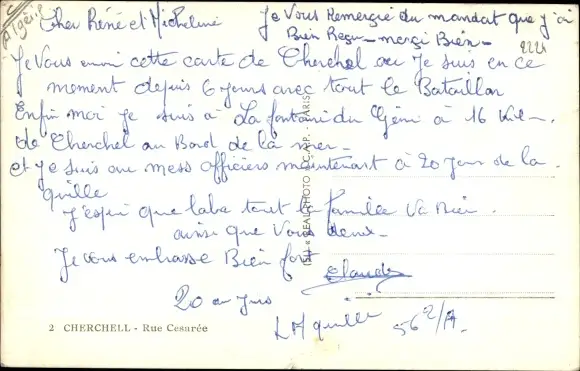 Algérie
Cher Réné et Micheline
Je Vous Remercie du mandat que j'ai
Bien Reçu - merçi Bien -
Je Vous envoi cette carte de Cherchel ou Je suis en ce
moment depuis 6 jours avec tout le Bataillon
Enfin moi je suis à La fontaine du Géni à 16 Kilm.
de Cherchel au Bord de la mer -
et Je suis au mess officiers maintenant à 20 jour de la
quille
J'espère que laba tout la famille va Bien.
ainsi que Vous deux -
Je vous embrasse Bien fort
Claude
20 au jus
La quille 56 2/A.
2 CHERCHELL - Rue Cesarée
REAL-PHOTO C.A.P. - PARIS